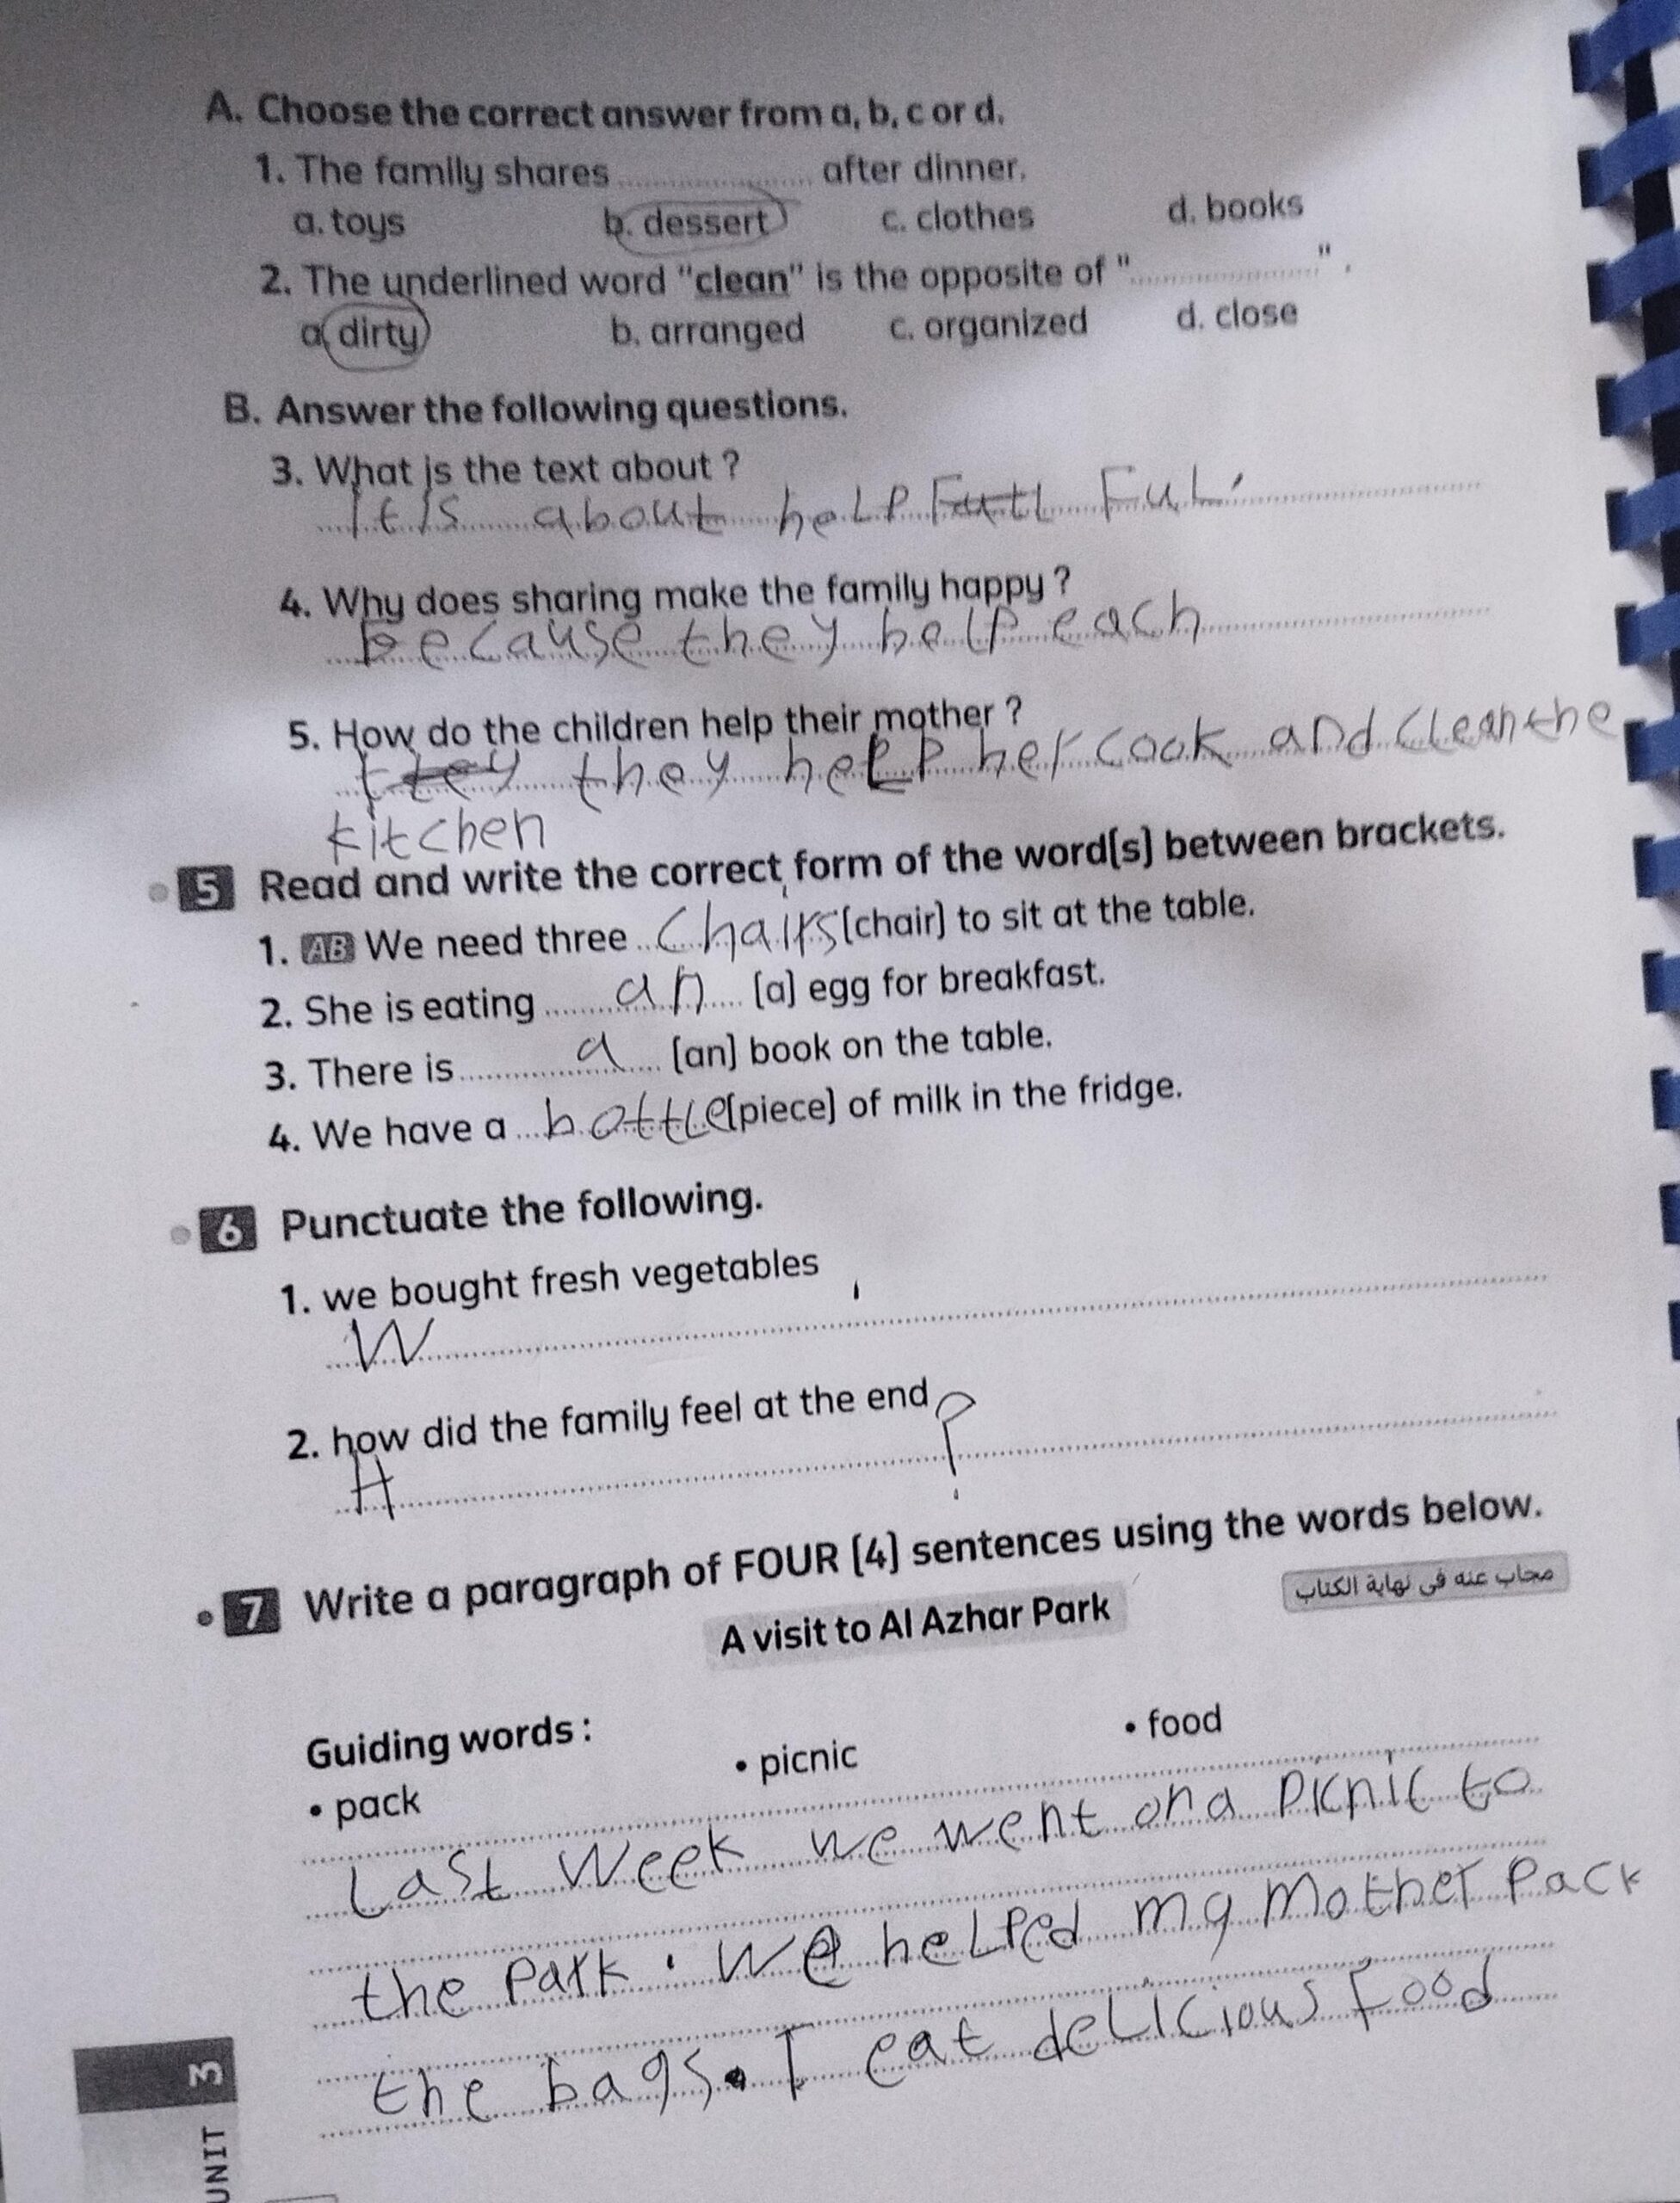 A. Choose the correct answer from a, b, c or d.
1. The family shares .................... after dinner.
a. toys b. dessert c. clothes d. books
2. The underlined word "clean" is the opposite of "....................".
a. dirty b. arranged c. organized d. close
B. Answer the following questions.
3. What is the text about ?
It is about help Full Ful.
4. Why does sharing make the family happy ?
Because they help each
5. How do the children help their mother ?
they help her cook and clean the
kitchen
5 Read and write the correct form of the word(s) between brackets.
1. AB We need three chairs (chair) to sit at the table.
2. She is eating an (a) egg for breakfast.
3. There is a (an) book on the table.
4. We have a bottle (piece) of milk in the fridge.
6 Punctuate the following.
1. we bought fresh vegetables
W .
2. how did the family feel at the end
H ?
7 Write a paragraph of FOUR (4) sentences using the words below.
مجاب عنه فى نهاية الكتاب
A visit to Al Azhar Park
Guiding words :
• pack • picnic • food
Last Week we went on a picnic to
the park. We helped my mother pack
the bags. I eat delicious food
UNIT 3